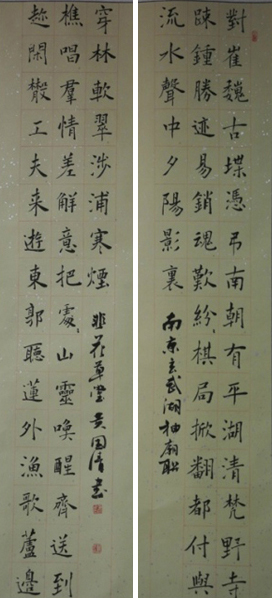 對崔巍古堞憑弔南朝有平湖清梵野寺
踈鍾勝迹易銷魂歎紛〻棋局掀翻都付與
流水聲中夕陽影裏
南京玄武湖神廟聯
趂閑散工夫来遊東郭聽蓮外漁歌蘆邊
樵唱羣情差解意把處〻山靈喚醒齊送到
穿林軟翠涉浦寒煙
非花草堂吴国清書